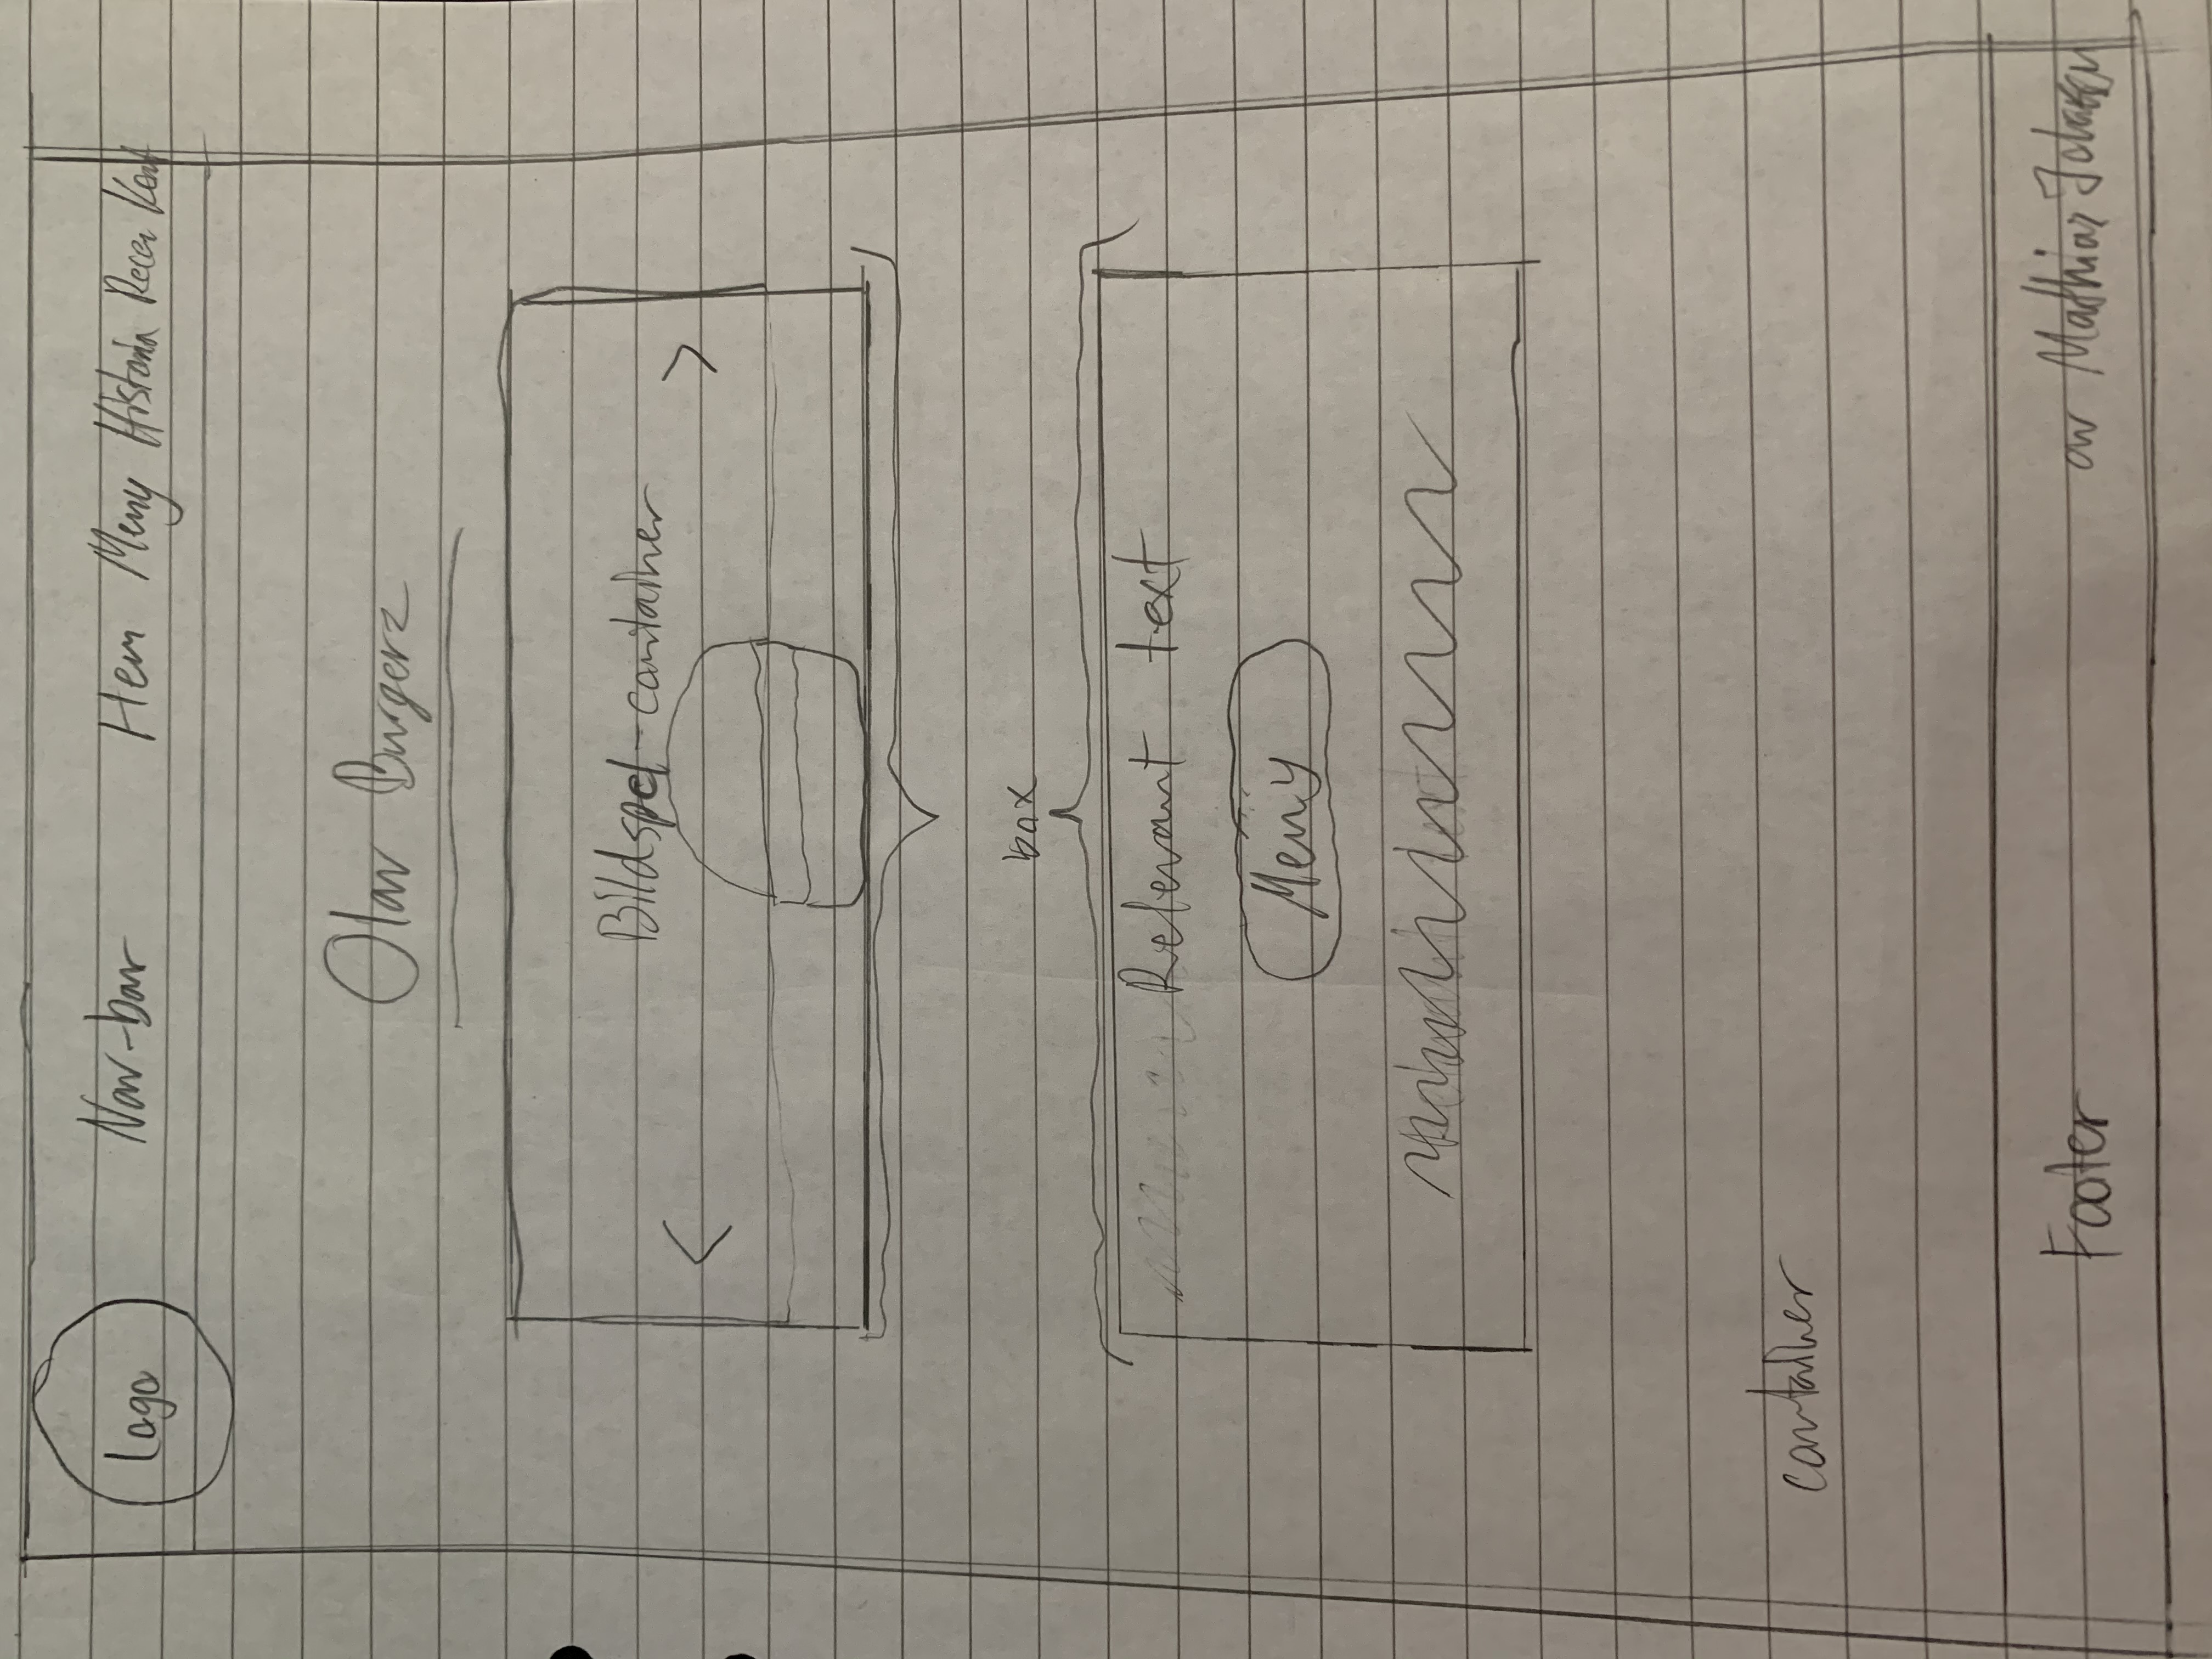 Logo Nav-bar Hem Meny Historia Recen Kont
Olav Burgerz
Bildspel-container
< >
box
Relevant text
Meny
container
Footer av Mathias